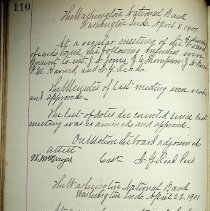 110
The Washington National Bank
Washington Ind. April 8 1901
At a regular meeting of the Board
of directors the following members were
present to wit J. Jones
P.M. Harned and
The Minutes of last meeting was read
and approved.
The list of notes discounted since last
meeting was examined and approved.
On motion the board adjourned
attest
Cash
The Washington National Bank
Washington Ind April 22, 1901